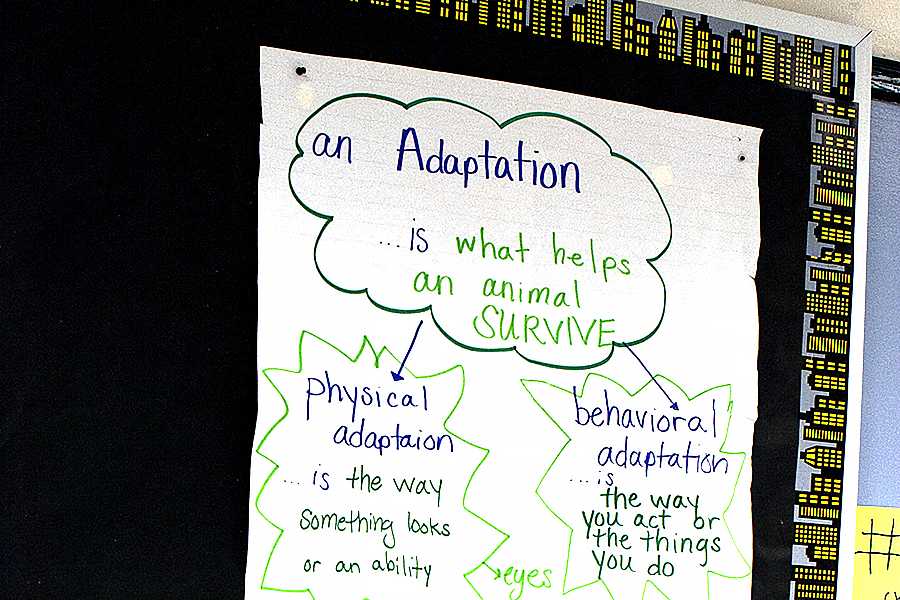 an Adaptation
...is what helps
an animal
SURVIVE
physical
adaptaion
...is the way
something looks
or an ability
eyes
behavioral
adaptation
...is
the way
you act or
the things
you do
#